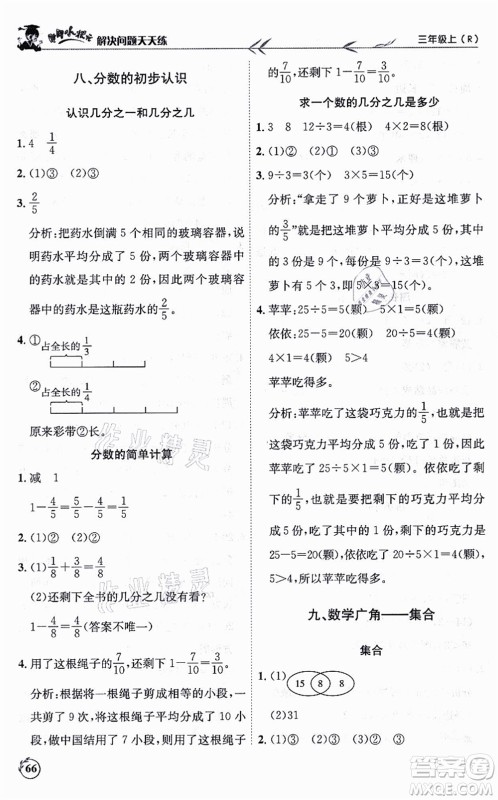 黄冈小状元 解决问题天天练
三年级上（R）
八、分数的初步认识
认识几分之一和几分之几
1. 4 1/4
2. (1)③ (2)③
3. 2/5
分析：把药水倒满 5 个同样的玻璃容器，
药水平均分成了 5 份，2 个玻璃容器里
的药水就占了其中的 2 份，因此 2 个容
器中的药水是这瓶药水的2/5。
4. ①占全长的1/3
②占全长的1/4
原来彩带②长。
分数的简单计算
1. 减 1
1－4/5＝5/5－4/5＝1/5
2. (1)② (2)③
3. (1)1/8＋3/8＝4/8
(2)还剩下全书的几分之几没有看？
1－4/8＝4/8(答案不唯一)
4. 用了这根绳子的7/10，还剩下这根绳子的3/10。
分析：把这根绳子剪成同样的 10 小段，
做中国结用了 7 小段，就是用了这根绳子
的7/10，还剩下 1－7/10＝3/10。
求一个数的几分之几是多少
1. 3 8 12÷3＝4(根) 4×2＝8(根)
2. (1)① (2)①
3. 9÷3＝3(个) 3×5＝15(个)
分析：“拿走了 9 个萝卜，正好是这堆萝卜
的3/5”，就是把这堆萝卜平均分成 5 份，
其中的 3 份是 9 个，每份是 3 个，这堆萝
卜有 5 个 3，就是 15 个。
4. 苹苹：25÷5＝5(颗) 5×1＝5(颗)
依依：25－5＝20(颗) 20÷5＝4(颗)
4×1＝4(颗) 5＞4
苹苹吃得多。
分析：苹苹吃了这袋巧克力的1/5，就是把
这袋巧克力平均分成 5 份，苹苹吃了 1
份，25÷5＝5(颗)；依依吃了剩下巧克力
的1/5，就是要把剩下的巧克力平均分，
25－5＝20(颗)，20÷5＝4(颗)。
5＞4，苹苹吃得多。
九、数学广角——集合
集合
1. (1)
15 8 8
(2)31
2. (1)② (2)②
66
作业精灵
作业精灵
答案圈
MXQE.COM